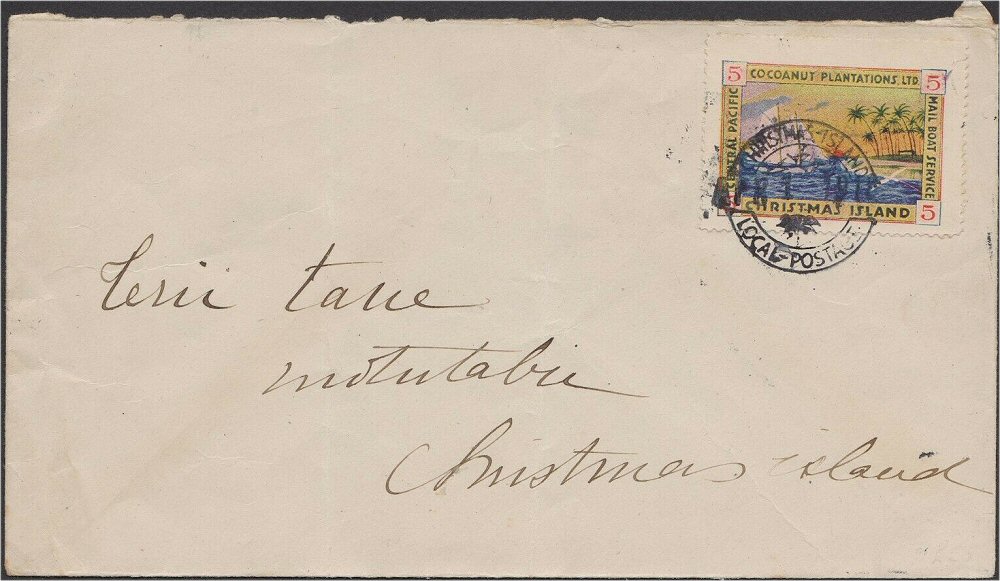 5 COCOANUT PLANTATIONS, LTD. 5
CENTRAL PACIFIC
MAIL BOAT SERVICE
5 CHRISTMAS ISLAND 5
CHRISTMAS ISLAND
APR 1
LOCAL-POSTAGE
Terii tane
motutabu
Christmas island